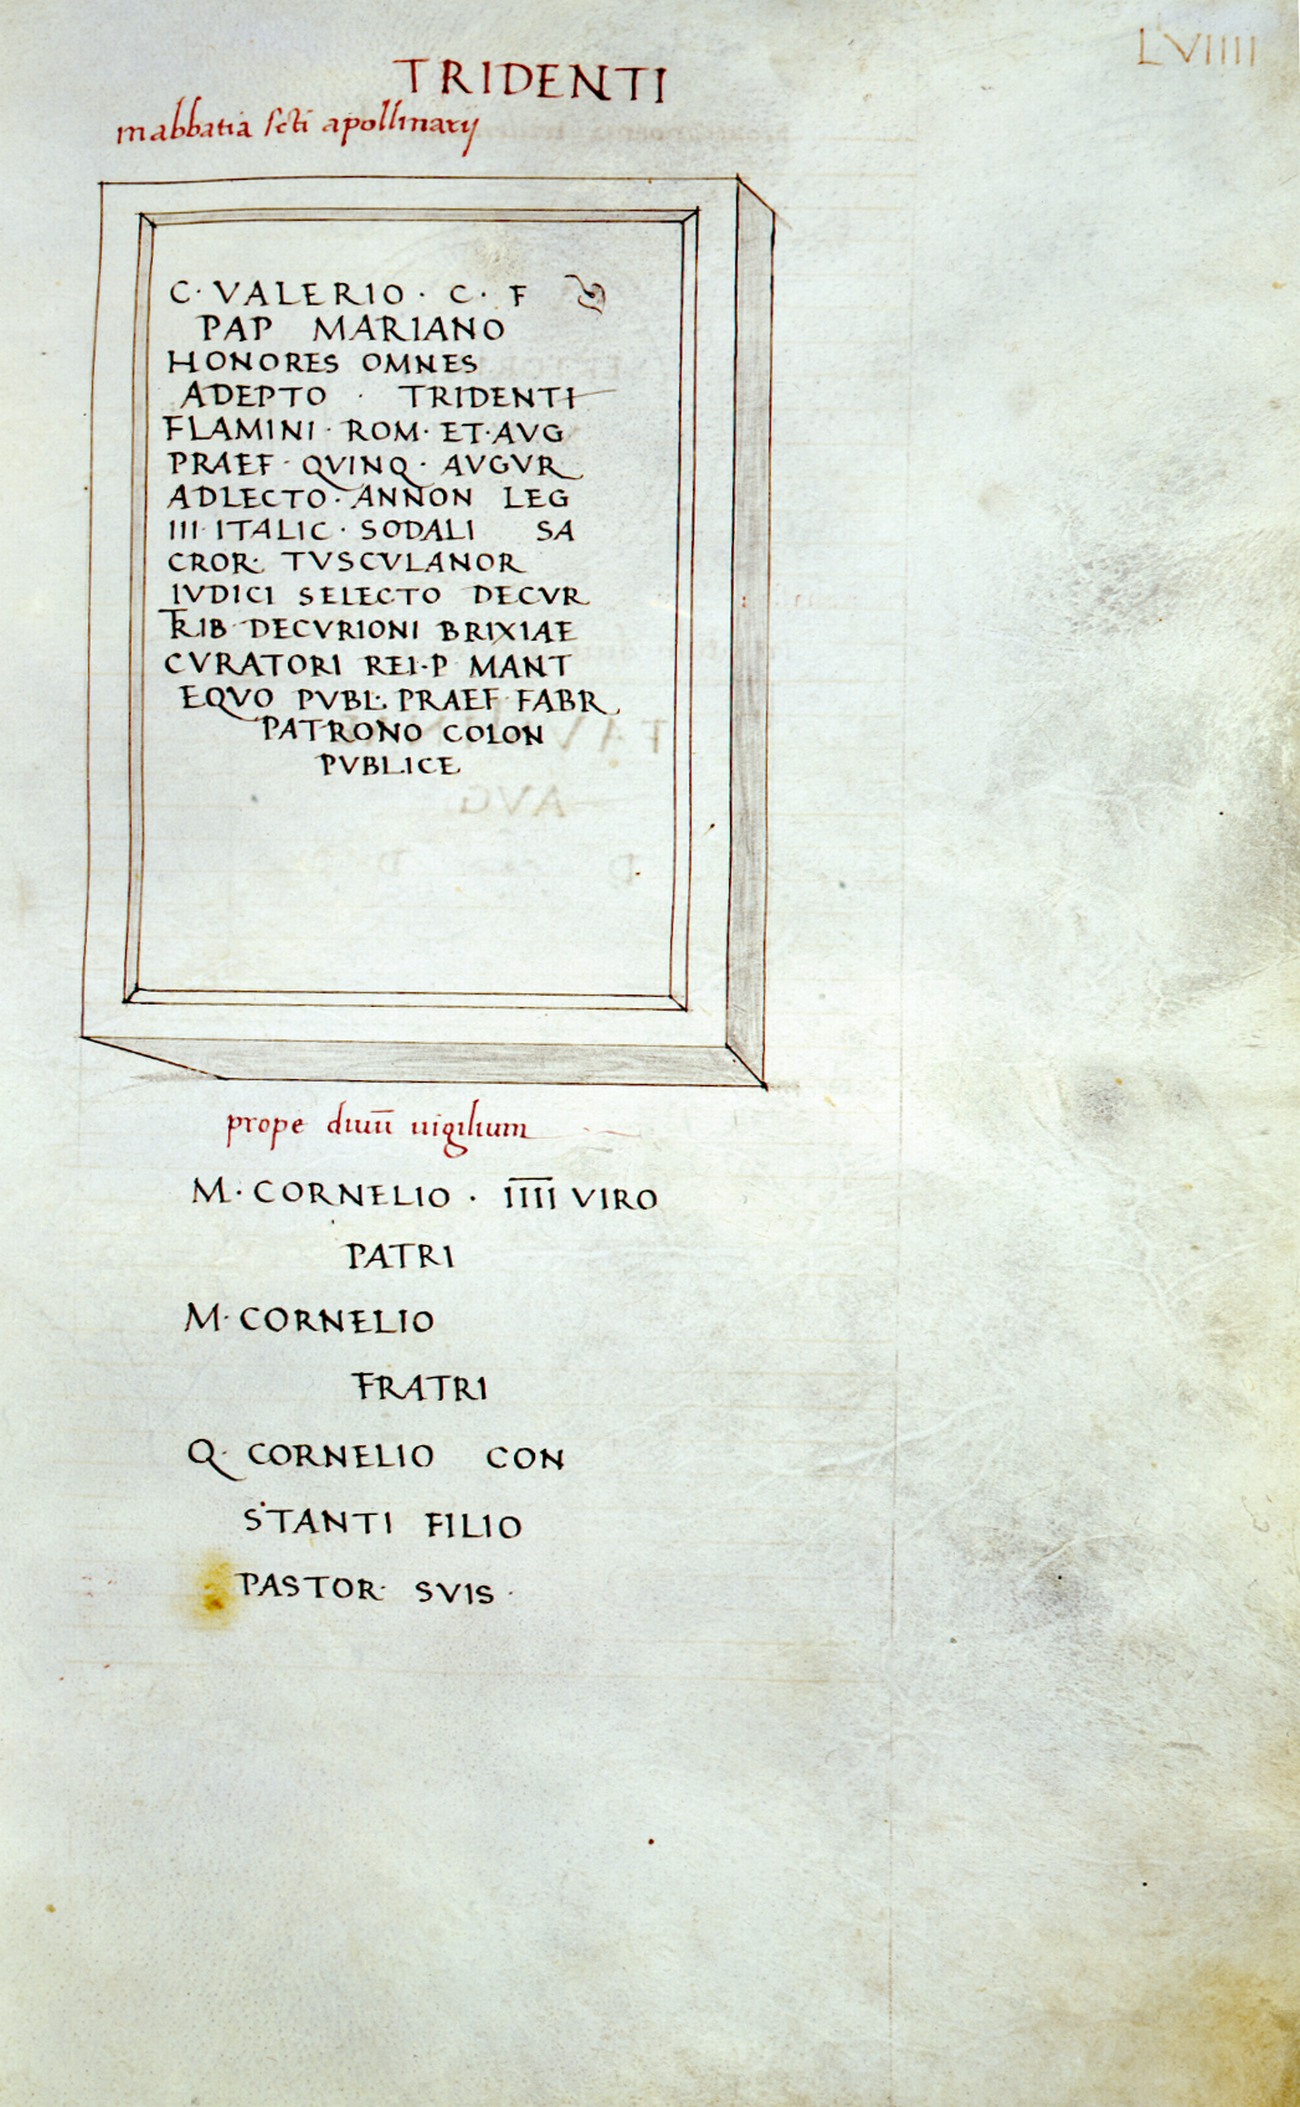 LVIIII
TRIDENTI
in abbatia scti apollinarij
C · VALERIO · C · F
PAP MARIANO
HONORES OMNES
ADEPTO · TRIDENTI
FLAMINI · ROM · ET · AVG
PRAEF · QVINQ · AVGVR
ADLECTO · ANNON LEG
III · ITALIC · SODALI SA
CROR · TVSCVLANOR
IVDICI SELECTO DECVR
TRIB · DECVRIONI BRIXIAE
CVRATORI REI · P MANT
EQVO PVBL · PRAEF FABR
PATRONO COLON
PVBLICE
prope diuū uigilium
M · CORNELIO · I̅I̅I̅I̅ VIRO
PATRI
M · CORNELIO
FRATRI
Q · CORNELIO CON
STANTI FILIO
PASTOR · SVIS ·